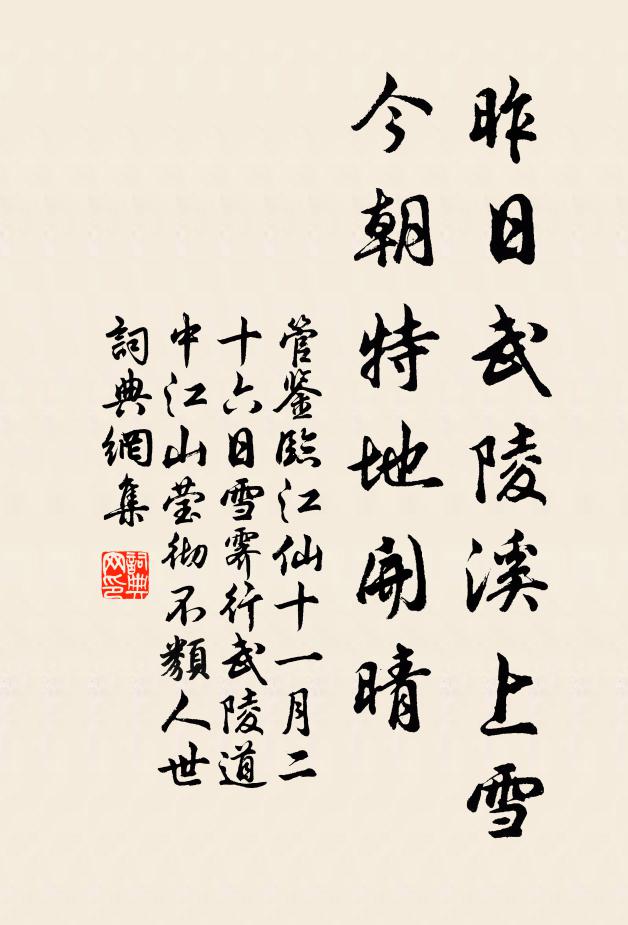 昨日武陵溪上雪
今朝特地開晴
管鑒臨江仙十一月二
十六日雪霽行武陵道
中江山莹彻不類人世
詞典網集
詞典
网印